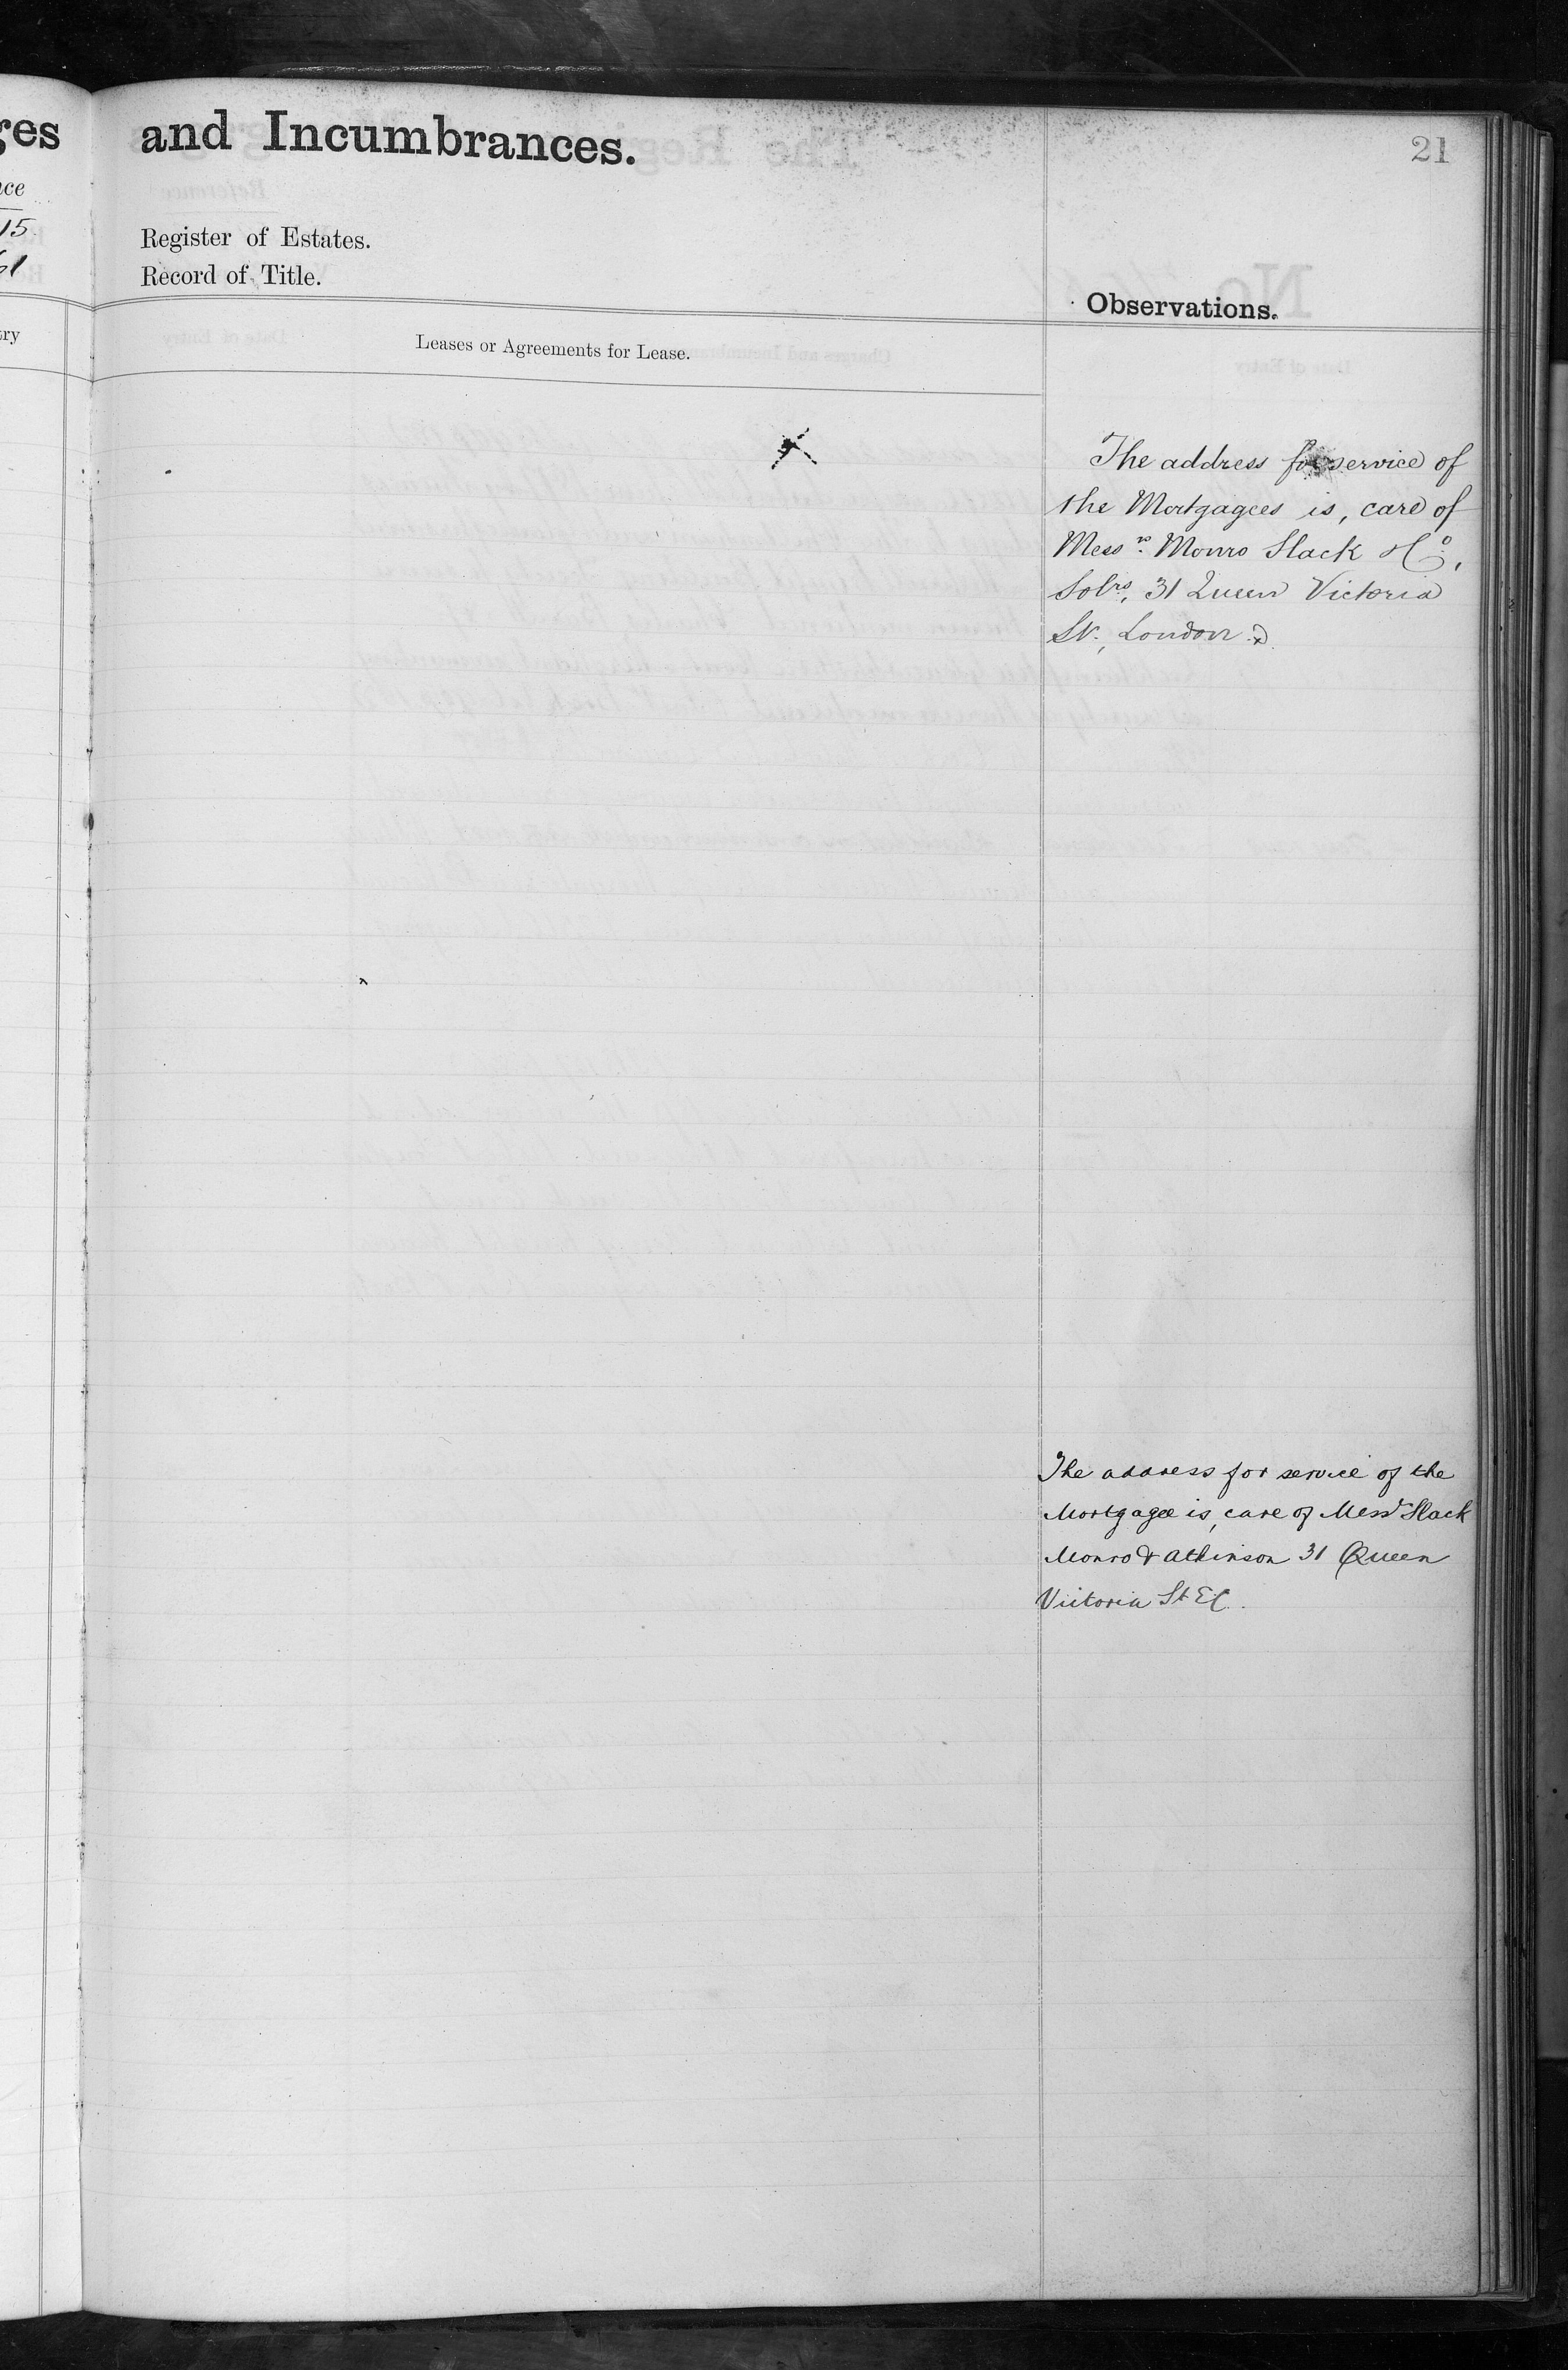 ges and Incumbrances.
21
nce
15
61
Register of Estates.
Record of Title.
Observations.
try
Leases or Agreements for Lease.
The address for service of
the Mortgagees is, care of
Messrs. Monro Slack & Co.,
Solrs, 31 Queen Victoria
St., London
The address for service of the
Mortgagee is, care of Messrs Slack
Monro & Atkinson 31 Queen
Victoria St EC.